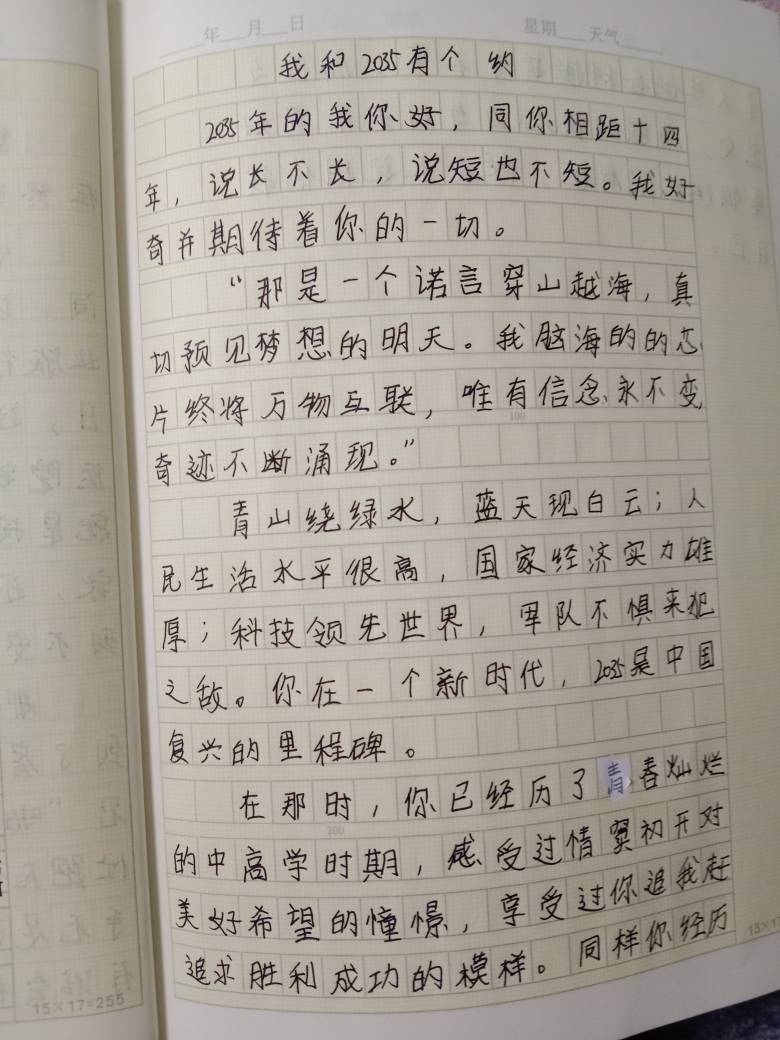 年 月 日 星期 天气
我和2035有个约
2035年的我你好，同你相距十四
年，说长不长，说短也不短。我好
奇并期待着你的一切。
“那是一个诺言穿山越海，真
切预见梦想的明天。我脑海的的芯
片终将万物互联，唯有信念永不变
100
奇迹不断涌现。”
青山绕绿水，蓝天现白云；人
民生活水平很高，国家经济实力雄
厚；科技领先世界，军队不惧来犯
之敌。你在一个新时代，2035是中国
复兴的里程碑。
在那时，你已经历了青春灿烂
200
的中高学时期，感受过情窦初开对
美好希望的憧憬，享受过你追我赶
追求胜利成功的模样。同样你经历
15×17=255
15×1